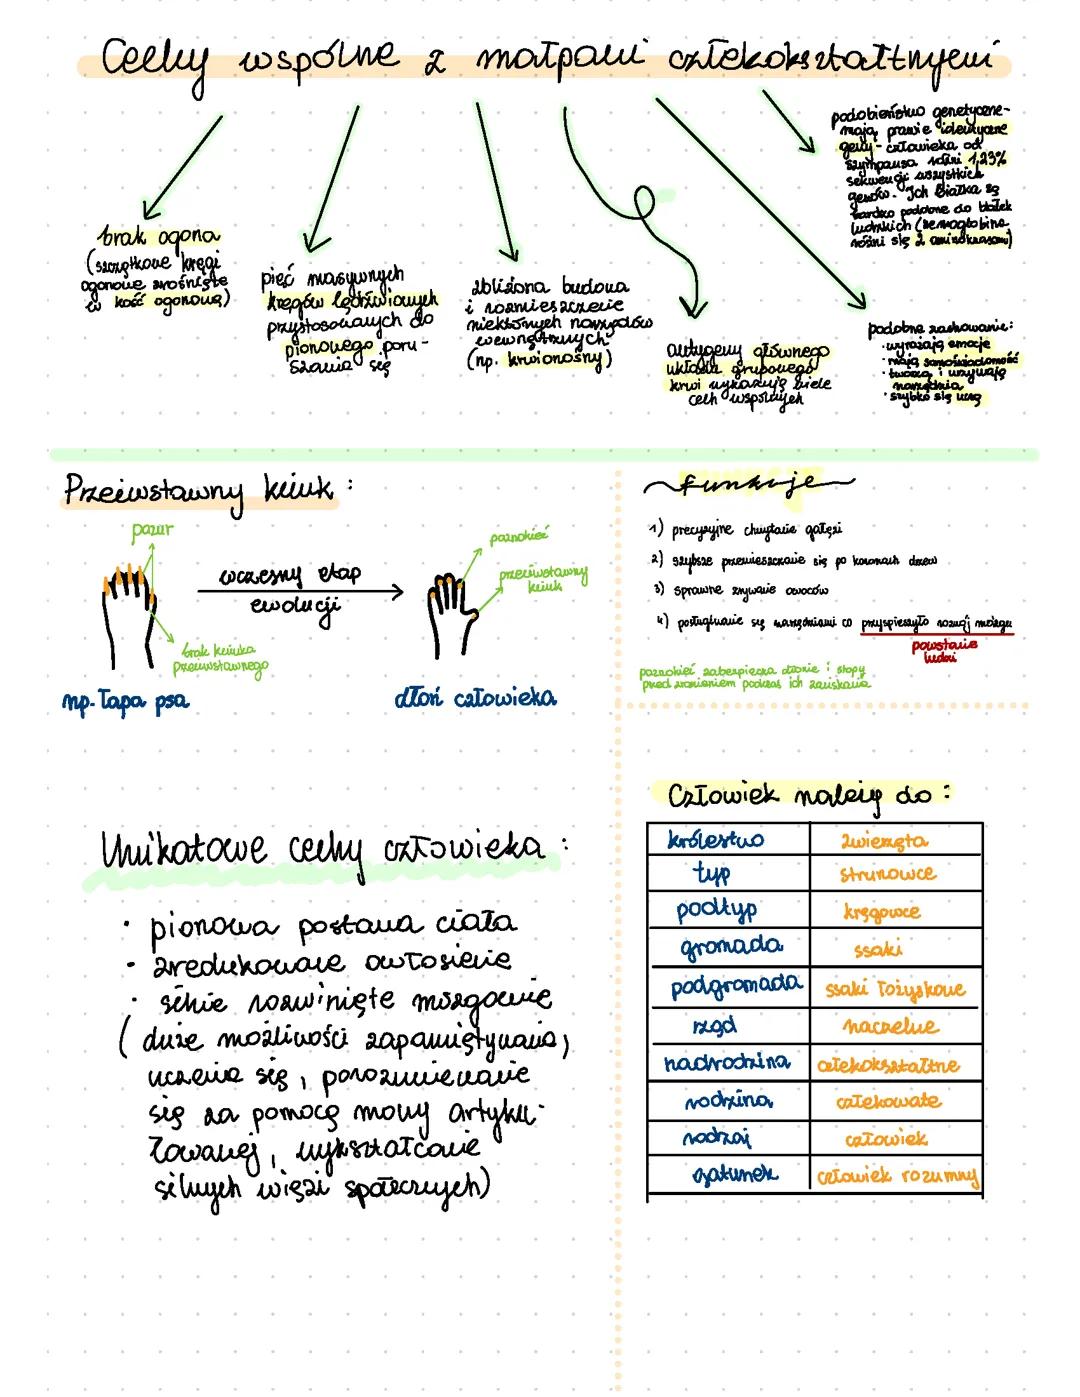 Cechy wspólne z małpami człekokształtnymi
brak ogona
(szczątkowe kręgi
ogonowe zrośnięte
w kość ogonową)
pięć masywnych
kręgów lędźwiowych
przystosowanych do
pionowego poru-
szania się
zbliżona budowa
i rozmieszczenie
niektórych narządów
wewnętrznych
(np. krwionośny)
antygeny głównego
układu grupowego
krwi wykazują wiele
cech wspólnych
podobieństwo genetyczne-
mają prawie identyczne
geny - człowieka od
szympansa różni 1,23%
sekwencji wszystkich
genów. Ich białka są
bardzo podobne do białek
ludzkich (hemoglobina
różni się 2 aminokwasami)
podobne zachowanie:
· wyrażają emocje
· mają samoświadomość
· tworzą i używają
narzędzia
· szybko się uczą
Przeciwstawny kciuk :
pazur
brak kciuka
przeciwstawnego
np. łapa psa
wczesny etap
ewolucji
paznokieć
przeciwstawny
kciuk
dłoń człowieka
funkcje
1) precyzyjne chwytanie gałęzi
2) szybsze przemieszczanie się po koronach drzew
3) sprawne zrywanie owoców
4) posługiwanie się narzędziami co przyspieszyło rozwój mózgu
powstanie
ludzi
paznokieć zabezpiecza dłonie i stopy
przed zranieniem podczas ich zaciskania
Unikatowe cechy człowieka :
· pionowa postawa ciała
· zredukowane owłosienie
· silnie rozwinięte mózgowie
( duże możliwości zapamiętywania,
uczenia się, porozumiewanie
się za pomocą mowy artyku-
łowanej, wykształcanie
silnych więzi społecznych)
Człowiek należy do :
królestwo zwierzęta
typ strunowce
podtyp kręgowce
gromada ssaki
podgromada ssaki łożyskowe
rząd naczelne
nadrodzina człekokształtne
rodzina człekowate
rodzaj człowiek
gatunek człowiek rozumny